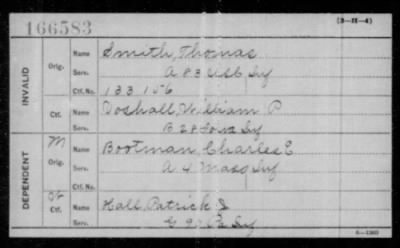 166583
(3-H-4)
INVALID
Orig. Name Smith, Thomas
Serv. A 83 USC Inf
Ctf. No. 133 156
Ctf. Name Voshall, William P
Serv. B 28 Iowa Inf
DEPENDENT
M
Orig. Name Bootman, Charles E
Serv. A 4 Mass Inf
Ctf. No.
Ctf. Name Hall, Patrick J
Serv. Pa Inf